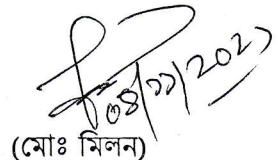 ০৪/১১/২০২১
(মোঃ মিলন)